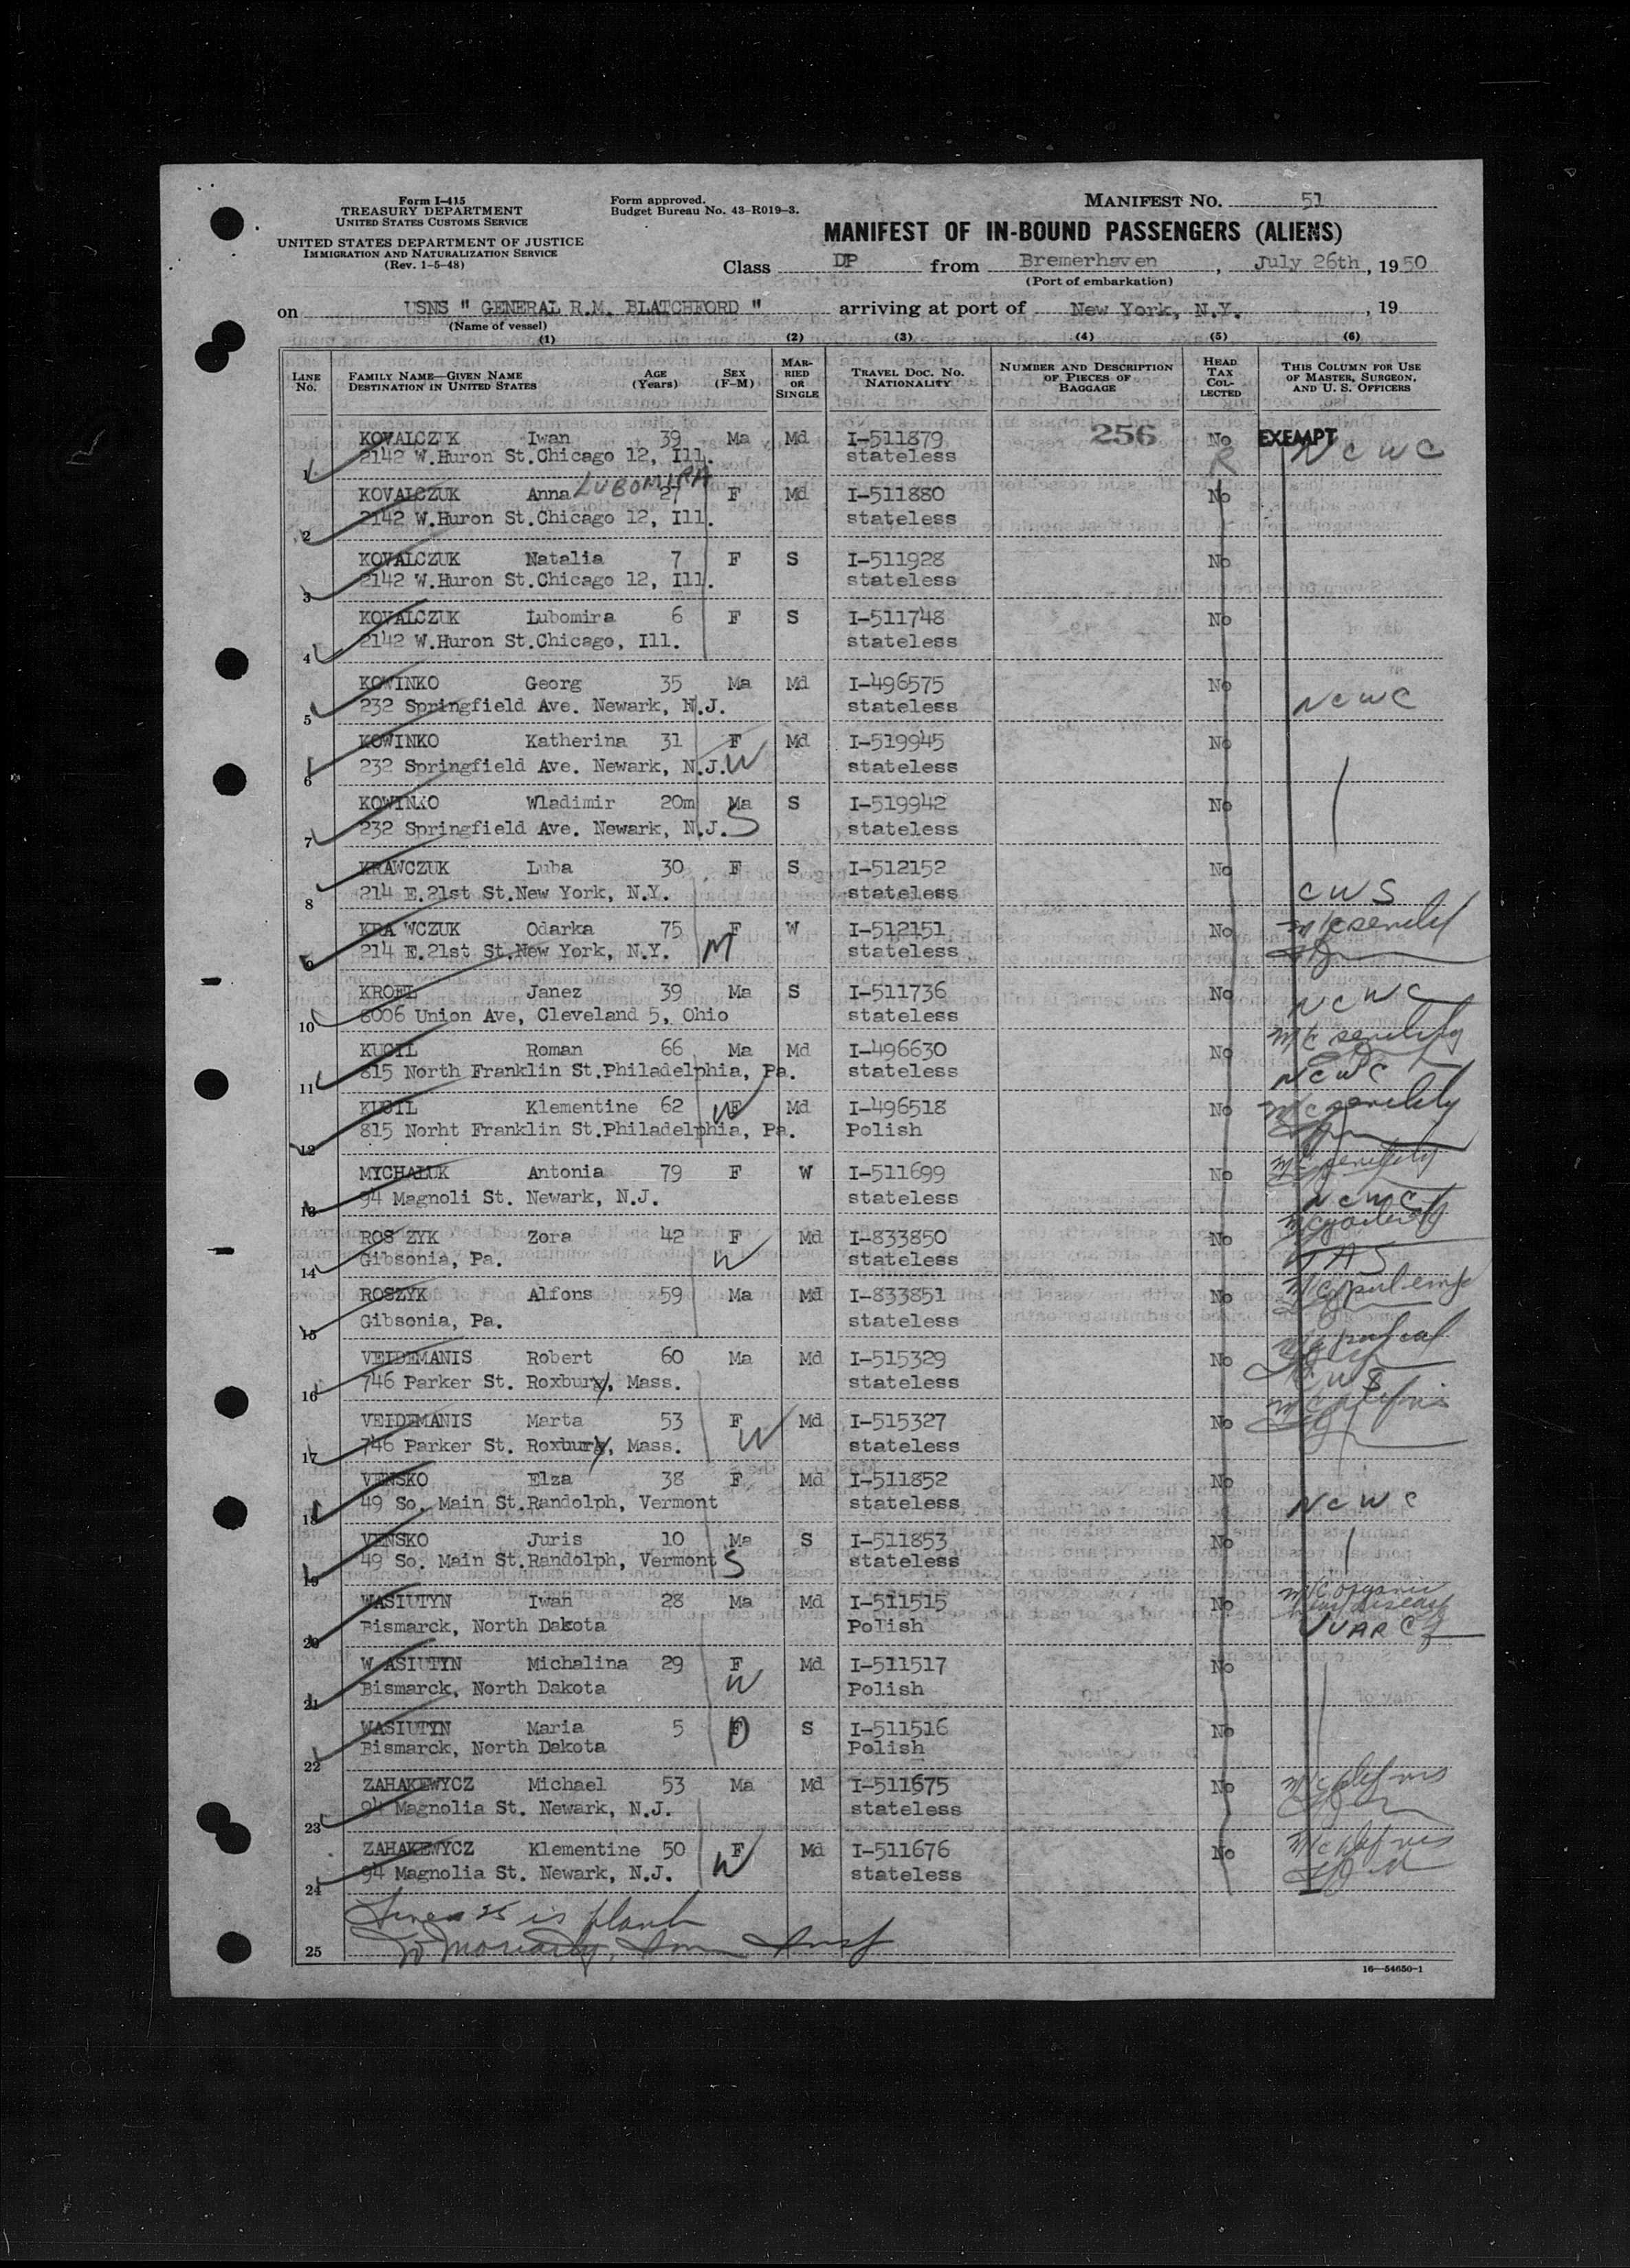 Form I-415
TREASURY DEPARTMENT
UNITED STATES CUSTOMS SERVICE
UNITED STATES DEPARTMENT OF JUSTICE
IMMIGRATION AND NATURALIZATION SERVICE
(Rev. 1-5-48)
Form approved.
Budget Bureau No. 43-R019-3.
MANIFEST NO. 51
MANIFEST OF IN-BOUND PASSENGERS (ALIENS)
Class DP from Bremerhaven, July 26th, 1950
(Port of embarkation)
on USNS " GENERAL R.M. BLATCHFORD " arriving at port of New York, N.Y. , 19
(Name of vessel)
(1) (2) (3) (4) (5) (6)
LINE No. FAMILY NAME—GIVEN NAME DESTINATION IN UNITED STATES AGE (Years) SEX (F-M) MARRIED OR SINGLE TRAVEL DOC. NO. NATIONALITY NUMBER AND DESCRIPTION OF PIECES OF BAGGAGE HEAD TAX COLLECTED THIS COLUMN FOR USE OF MASTER, SURGEON, AND U. S. OFFICERS
KOVALCZUK Iwan 39 Ma Md I-511879 256 No EXEMPT NCWC
1 2142 W.Huron St.Chicago 12, Ill. stateless R
KOVALCZUK Anna LUBOMIRA 27 F Md I-511880 No
2 2142 W.Huron St.Chicago 12, Ill. stateless
KOVALCZUK Natalia 7 F S I-511928 No
3 2142 W.Huron St.Chicago 12, Ill. stateless
KOVALCZUK Lubomira 6 F S I-511748 No
4 2142 W.Huron St.Chicago, Ill. stateless
KOWINKO Georg 35 Ma Md I-496575 No NCWC
5 232 Springfield Ave. Newark, N.J. stateless
KOWINKO Katherina 31 F Md I-519945 No
6 232 Springfield Ave. Newark, N.J. W stateless
KOWINKO Wladimir 20m Ma S I-519942 No
7 232 Springfield Ave. Newark, N.J. S stateless
KRAWCZUK Luba 30 F S I-512152 No
8 214 E.21st St.New York, N.Y. stateless CWS
KRA WCZUK Odarka 75 F W I-512151 No M/C senility
9 214 E.21st St.New York, N.Y. M stateless
KROFL Janez 39 Ma S I-511736 No NCWC
10 8006 Union Ave, Cleveland 5, Ohio stateless
KUCIL Roman 66 Ma Md I-496630 No M/C senility
11 815 North Franklin St.Philadelphia, Pa. stateless NCWC
KUCIL Klementine 62 F W Md I-496518 No M/C senility
12 815 Norht Franklin St.Philadelphia, Pa. Polish
MYCHALUK Antonia 79 F W I-511699 No M/C senility
13 94 Magnoli St. Newark, N.J. stateless NCWC
ROS ZYK Zora 42 F Md I-833850 No
14 Gibsonia, Pa. W stateless
ROSZYK Alfons 59 Ma Md I-833851 No
15 Gibsonia, Pa. stateless
VEIDEMANIS Robert 60 Ma Md I-515329 No
16 746 Parker St. Roxbury, Mass. stateless CWS
VEIDEMANIS Marta 53 F Md I-515327 No
17 746 Parker St. Roxbury, Mass. W stateless
VENSKO Elza 38 F Md I-511852 No
18 49 So. Main St.Randolph, Vermont stateless NCWC
VENSKO Juris 10 Ma S I-511853 No
19 49 So. Main St.Randolph, Vermont S stateless
WASIUTYN Iwan 28 Ma Md I-511515 No M/C organic
20 Bismarck, North Dakota Polish disease
W ASIUTYN Michalina 29 F Md I-511517 No
21 Bismarck, North Dakota W Polish
WASIUTYN Maria 5 F D S I-511516 No
22 Bismarck, North Dakota Polish
ZAHAKEWYCZ Michael 53 Ma Md I-511675 No
23 94 Magnolia St. Newark, N.J. stateless
ZAHAKEWYCZ Klementine 50 F Md I-511676 No
24 94 Magnolia St. Newark, N.J. W stateless
Line 25 is blank
25 Moriarty, Imm Insp
16—54650-1